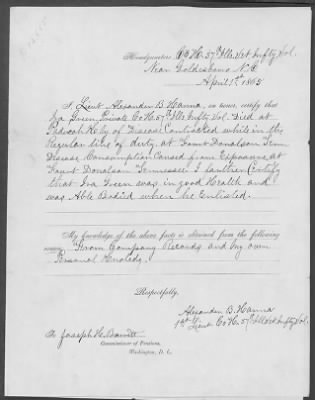 Headquarters Co H. 57th Ills. Vet Infty Vol.
Near Goldesboro N. C.
April 1st 1865
I, Lieut Alexander B. Hanna, on honor, certify that
Ira Green Private Co H. 57th Ills Infty Vol. Died at
Paducah Ky of Disease Contracted while in the
Regular line of duty, at Fourt Donalson Tenn
Disease Consumption Caused from Exposure, at
Fourt Donalson Tennessee I further Certify
that Ira Green was in good Health and
was Able Bodied when he Enlisted.
My knowledge of the above facts is obtained from the following
From Company Records and by own
Personal Knoledg.
Respectfully,
Alexander B. Hanna
1st Lieut Co H. 57th Ills Vet Infty Vol.
To Joseph H. Barrett
Commissioner of Pensions,
Washington, D. C.